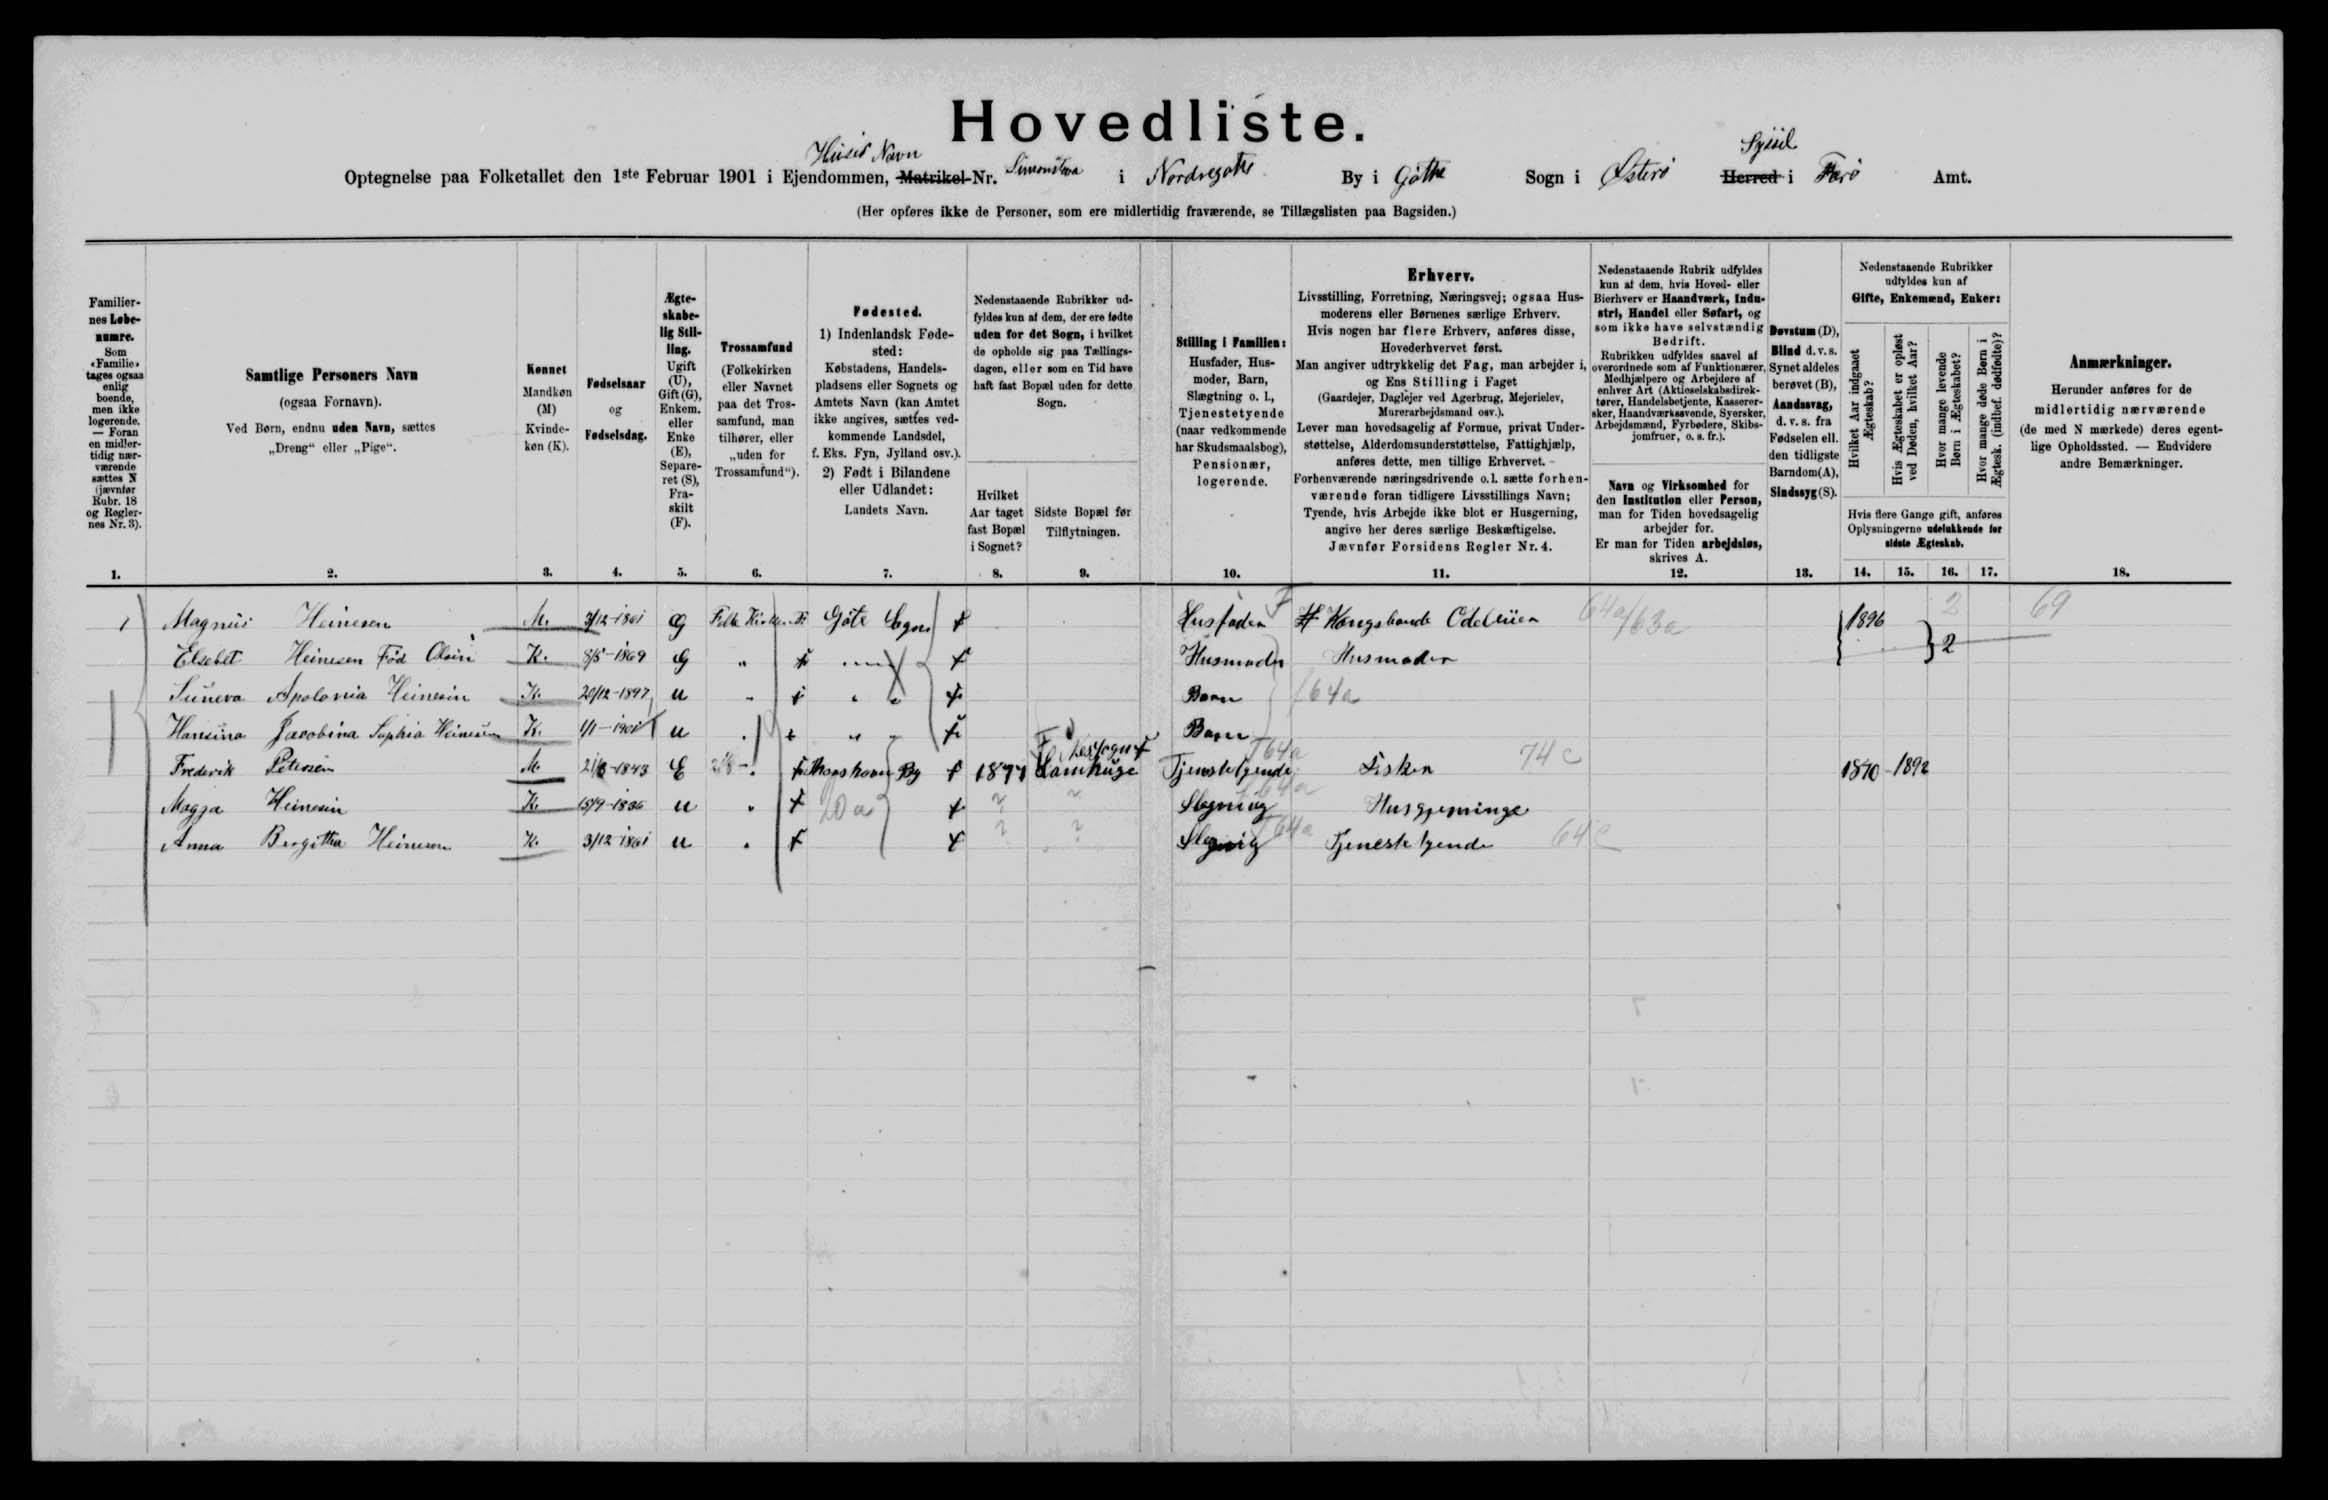 Hovedliste.
Optegnelse paa Folketallet den 1ste Februar 1901 i Ejendommen, Matrikel-Nr. i Nordregøthe By i Gøthe Sogn i Østerø Herred i Færø Amt.
Huses Navn
Syssel
(Her opføres ikke de Personer, som ere midlertidig fraværende, se Tillægslisten paa Bagsiden.)
Familiernes Løbenumre. Som «Familie» tages ogsaa enlig boende, men ikke logerende. — Foran en midlertidig nærværende sættes N (jævnfør Rubr. 18 og Reglernes Nr. 3).
Samtlige Personers Navn (ogsaa Fornavn). Ved Børn, endnu uden Navn, sættes „Dreng“ eller „Pige“.
Kønnet Mandkøn (M) Kvindekøn (K).
Fødselsaar og Fødselsdag.
Ægteskabelig Stilling. Ugift (U), Gift (G), Enkem. eller Enke (E), Separeret (S), Fraskilt (F).
Trossamfund (Folkekirken eller Navnet paa det Trossamfund, man tilhører, eller „uden for Trossamfund“).
Fødested. 1) Indenlandsk Fødested: Købstadens, Handelspladsens eller Sognets og Amtets Navn (kan Amtet ikke angives, sættes vedkommende Landsdel, f. Eks. Fyn, Jylland osv.). 2) Født i Bilandene eller Udlandet: Landets Navn.
Nedenstaaende Rubrikker udfyldes kun af dem, der ere fødte uden for det Sogn, i hvilket de opholde sig paa Tællingsdagen, eller som en Tid have haft fast Bopæl uden for dette Sogn.
Hvilket Aar taget fast Bopæl i Sognet?
Sidste Bopæl før Tilflytningen.
Stilling i Familien: Husfader, Husmoder, Barn, Slægtning o. l., Tjenestetyende (naar vedkommende har Skudsmaalsbog), Pensionær, logerende.
Erhverv.
Livsstilling, Forretning, Næringsvej; ogsaa Husmoderens eller Børnenes særlige Erhverv.
Hvis nogen har flere Erhverv, anføres disse, Hovederhvervet først.
Man angiver udtrykkelig det Fag, man arbejder i, og Ens Stilling i Faget (Gaardejer, Daglejer ved Agerbrug, Mejerielev, Murerarbejdsmand osv.).
Lever man hovedsagelig af Formue, privat Understøttelse, Alderdomsunderstøttelse, Fattighjælp, anføres dette, men tillige Erhvervet. -
Forhenværende næringsdrivende o. l. sætte forhenværende foran tidligere Livsstillings Navn;
Tyende, hvis Arbejde ikke blot er Husgerning, angive her deres særlige Beskæftigelse.
Jævnfør Forsidens Regler Nr. 4.
Nedenstaaende Rubrik udfyldes kun af dem, hvis Hoved- eller Bierhverv er Haandværk, Industri, Handel eller Søfart, og som ikke have selvstændig Bedrift.
Rubrikken udfyldes saavel af overordnede som af Funktionærer, Medhjælpere og Arbejdere af enhver Art (Aktieselskabsdirektører, Handelsbetjente, Kasserersker, Haandværkssvende, Syersker, Arbejdsmænd, Fyrbødere, Skibsjomfruer, o. s. fr.).
Navn og Virksomhed for den Institution eller Person, man for Tiden hovedsagelig arbejder for.
Er man for Tiden arbejdsløs, skrives A.
Døvstum (D), Blind d. v. s. Synet aldeles berøvet (B), Aandssvag, d. v. s. fra Fødselen ell. den tidligste Barndom (A), Sindssyg (S).
Nedenstaaende Rubrikker udfyldes kun af Gifte, Enkemænd, Enker:
Hvilket Aar indgaaet Ægteskab?
Hvis Ægteskabet er opløst ved Døden, hvilket Aar?
Hvor mange levende Børn i Ægteskabet?
Hvor mange døde Børn i Ægtesk. (indbef. dødfødte)?
Hvis flere Gange gift, anføres Oplysningerne udelukkende for sidste Ægteskab.
Anmærkninger. Herunder anføres for de midlertidig nærværende (de med N mærkede) deres egentlige Opholdssted. — Endvidere andre Bemærkninger.
1. 2. 3. 4. 5. 6. 7. 8. 9. 10. 11. 12. 13. 14. 15. 16. 17. 18.
1 Magnus Heinesen M. 3/12-1861 G Folke Kirken Gøte Sogn Husfader Kongsbonde 64a/63a 1896 2 69
Elsebet Heinesen Fød Olsin K. 8/5-1869 G " " Husmoder Husmoder 2
Suneva Apolonia Heinesin K. 20/12-1897 U " " " Barn 64a
Hansina Jacobina Sophia Heinesen K. 1/1-1901 U " " " Barn
Frederik Petersen M. 1843 E " Thorshavn By 1897 Lamhuge Tjenestetyende Fisker 74c 1870 - 1892
Magga Heinesin K. 15/9-1836 U " 20a ? ? Slegning Husgjerninge
Anna Birgitha Heinesen K. 3/12-1861 U " ? ? Slegnig 64a Tjenestetyende 64c